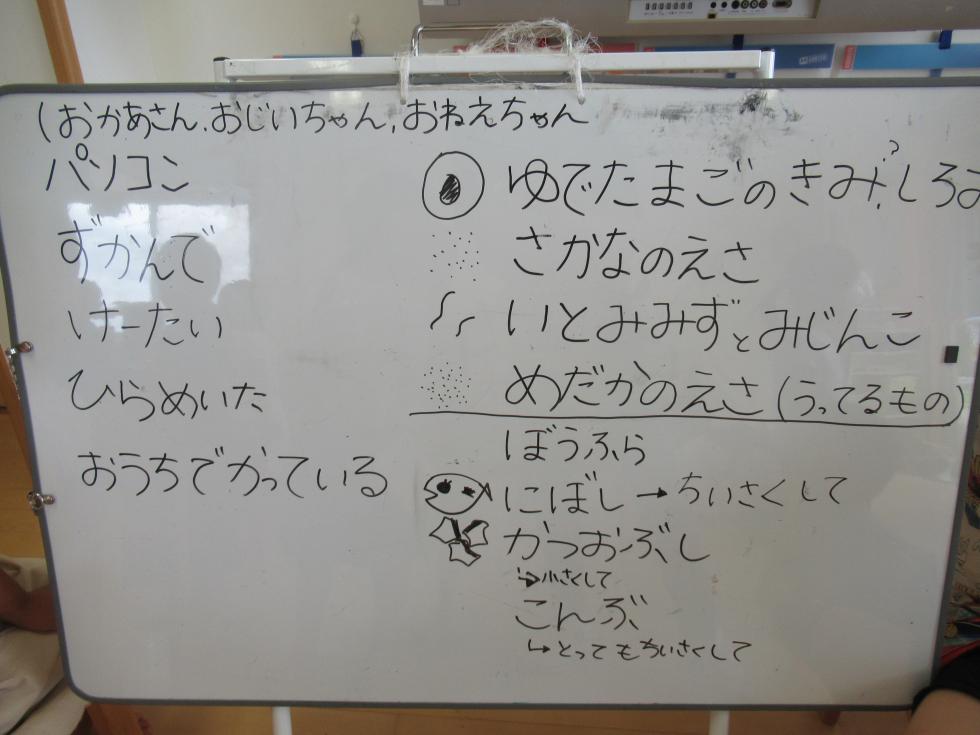 (おかあさん、おじいちゃん、おねえちゃん
パソコン
ずかんで
けーたい
ひらめいた
おうちでかっている
ゆでたまごのきみ?、しろみ
さかなのえさ
いとみみずとみじんこ
めだかのえさ(うってるもの)
ぼうふら
にぼし→ちいさくして
かつおぶし
↳小さくして
こんぶ
↳とってもちいさくして